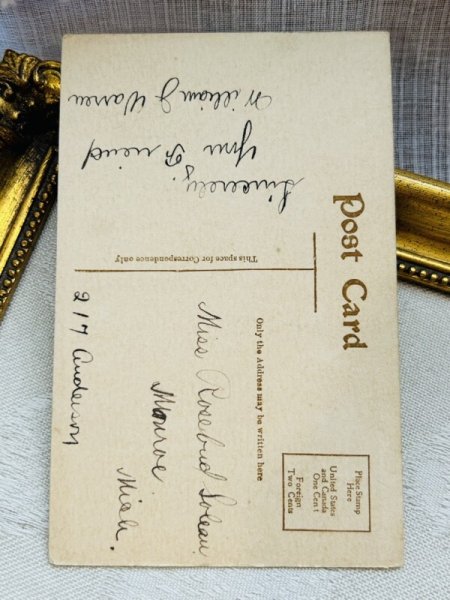 Post Card
This space for Correspondence only
Only the Address may be written here
Place Stamp
Here
United States
and Canada
One Cent
Foreign
Two Cents
Sincerely.
Your Friend
William J Warren
Miss Rosebud Soleau.
Monroe
Mich.
217 Anderson